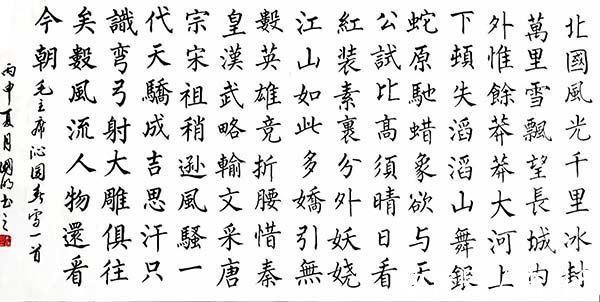 北國風光千里冰封
萬里雪飄望長城内
外惟餘莽莽大河上
下頓失滔滔山舞銀
蛇原馳蜡象欲与天
公試比高須晴日看
紅装素裹分外妖娆
江山如此多嬌引無
數英雄竞折腰惜秦
皇漢武略輸文采唐
宗宋祖稍逊風騷一
代天驕成吉思汗只
識弯弓射大雕俱往
矣數風流人物還看
今朝毛主席沁园春雪一首
丙申夏月书之